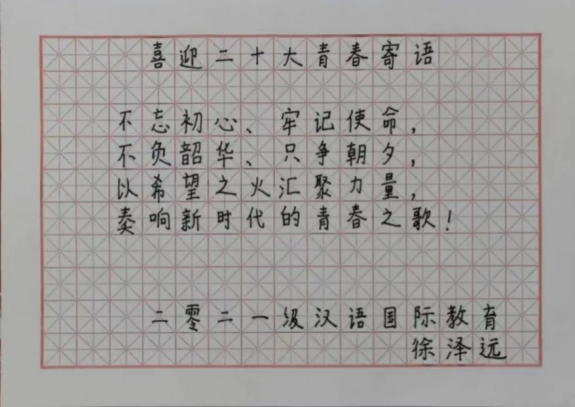 喜迎二十大青春寄语
不忘初心、牢记使命，
不负韶华、只争朝夕，
以希望之火汇聚力量，
奏响新时代的青春之歌！
二零二一级汉语国际教育
徐泽远